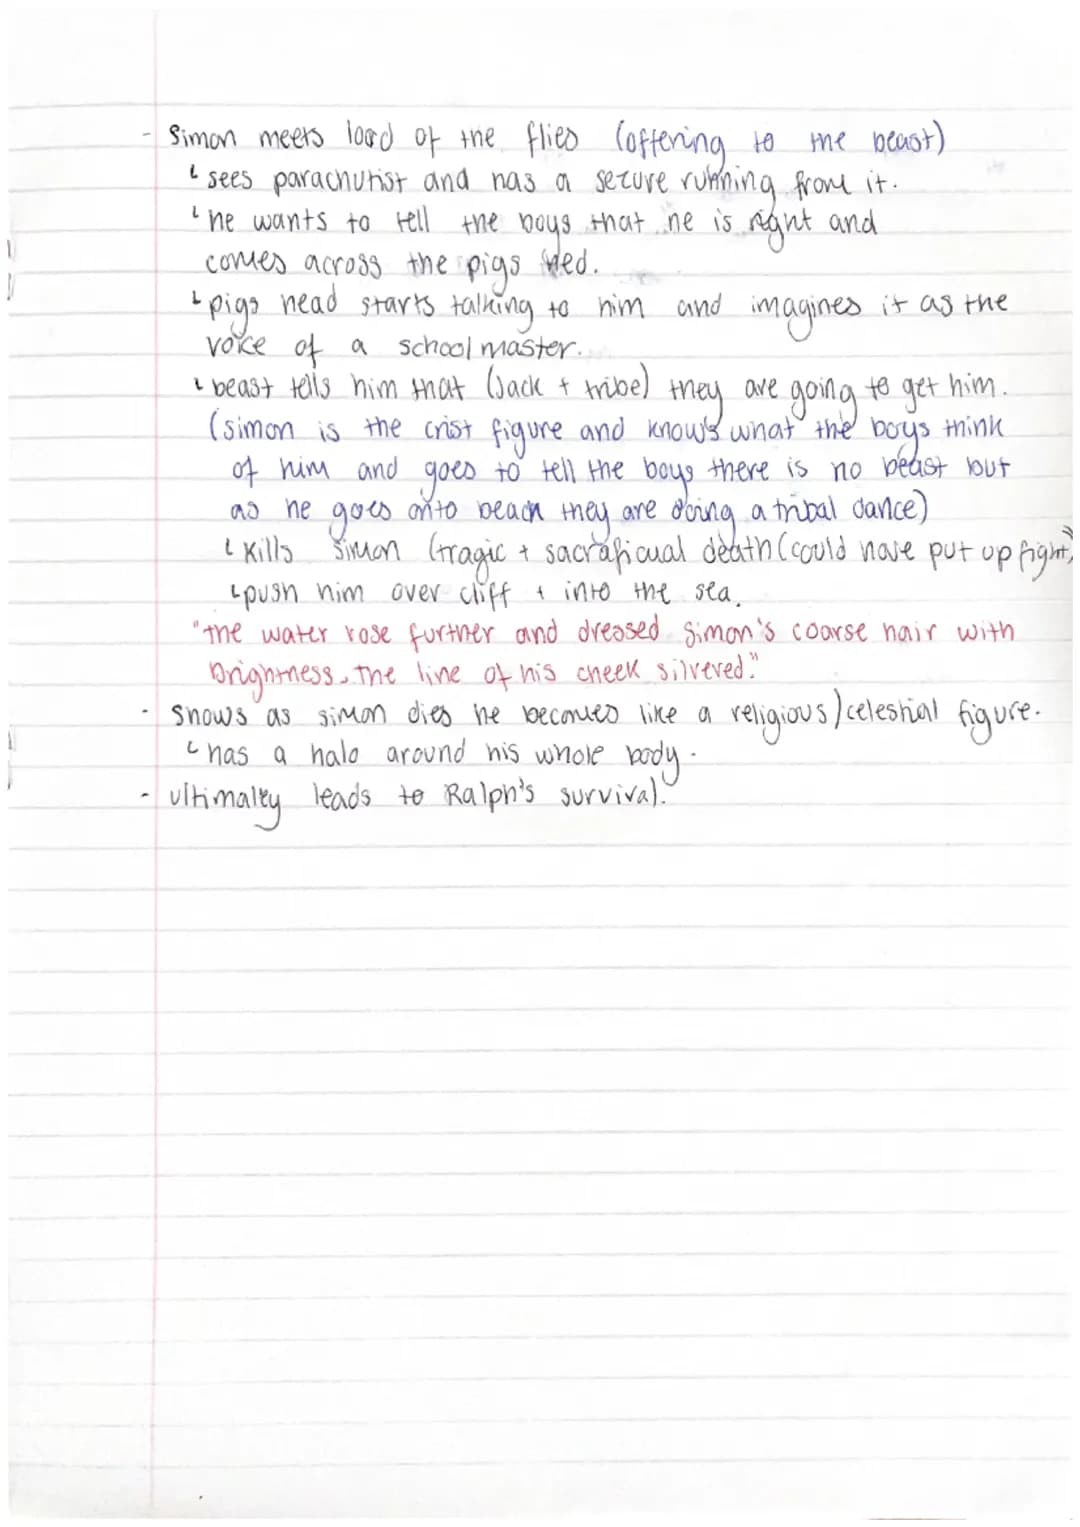 - Simon meets loard of the flies (offering to the beast)
↳ sees parachutist and has a sezure running from it.
↳ he wants to tell the boys that he is right and
comes across the pigs hed.
↳ pigs head starts talking to him and imagines it as the
voice of a school master.
↳ beast tells him that (Jack + tribe) they are going to get him.
(simon is the crist figure and know's what the boys think
of him and goes to tell the boys there is no beast but
as he goes onto beach they are doing a tribal dance)
↳ Kills Simon (tragic + sacraficual death (could have put up fight)
↳ push him over cliff + into the sea.
"the water rose further and dressed Simon's coarse hair with
brightness, the line of his cheek silvered."
- Shows as simon dies he becomes like a religious/celestial figure.
↳ has a halo around his whole body.
- ultimaley leads to Ralph's survival.